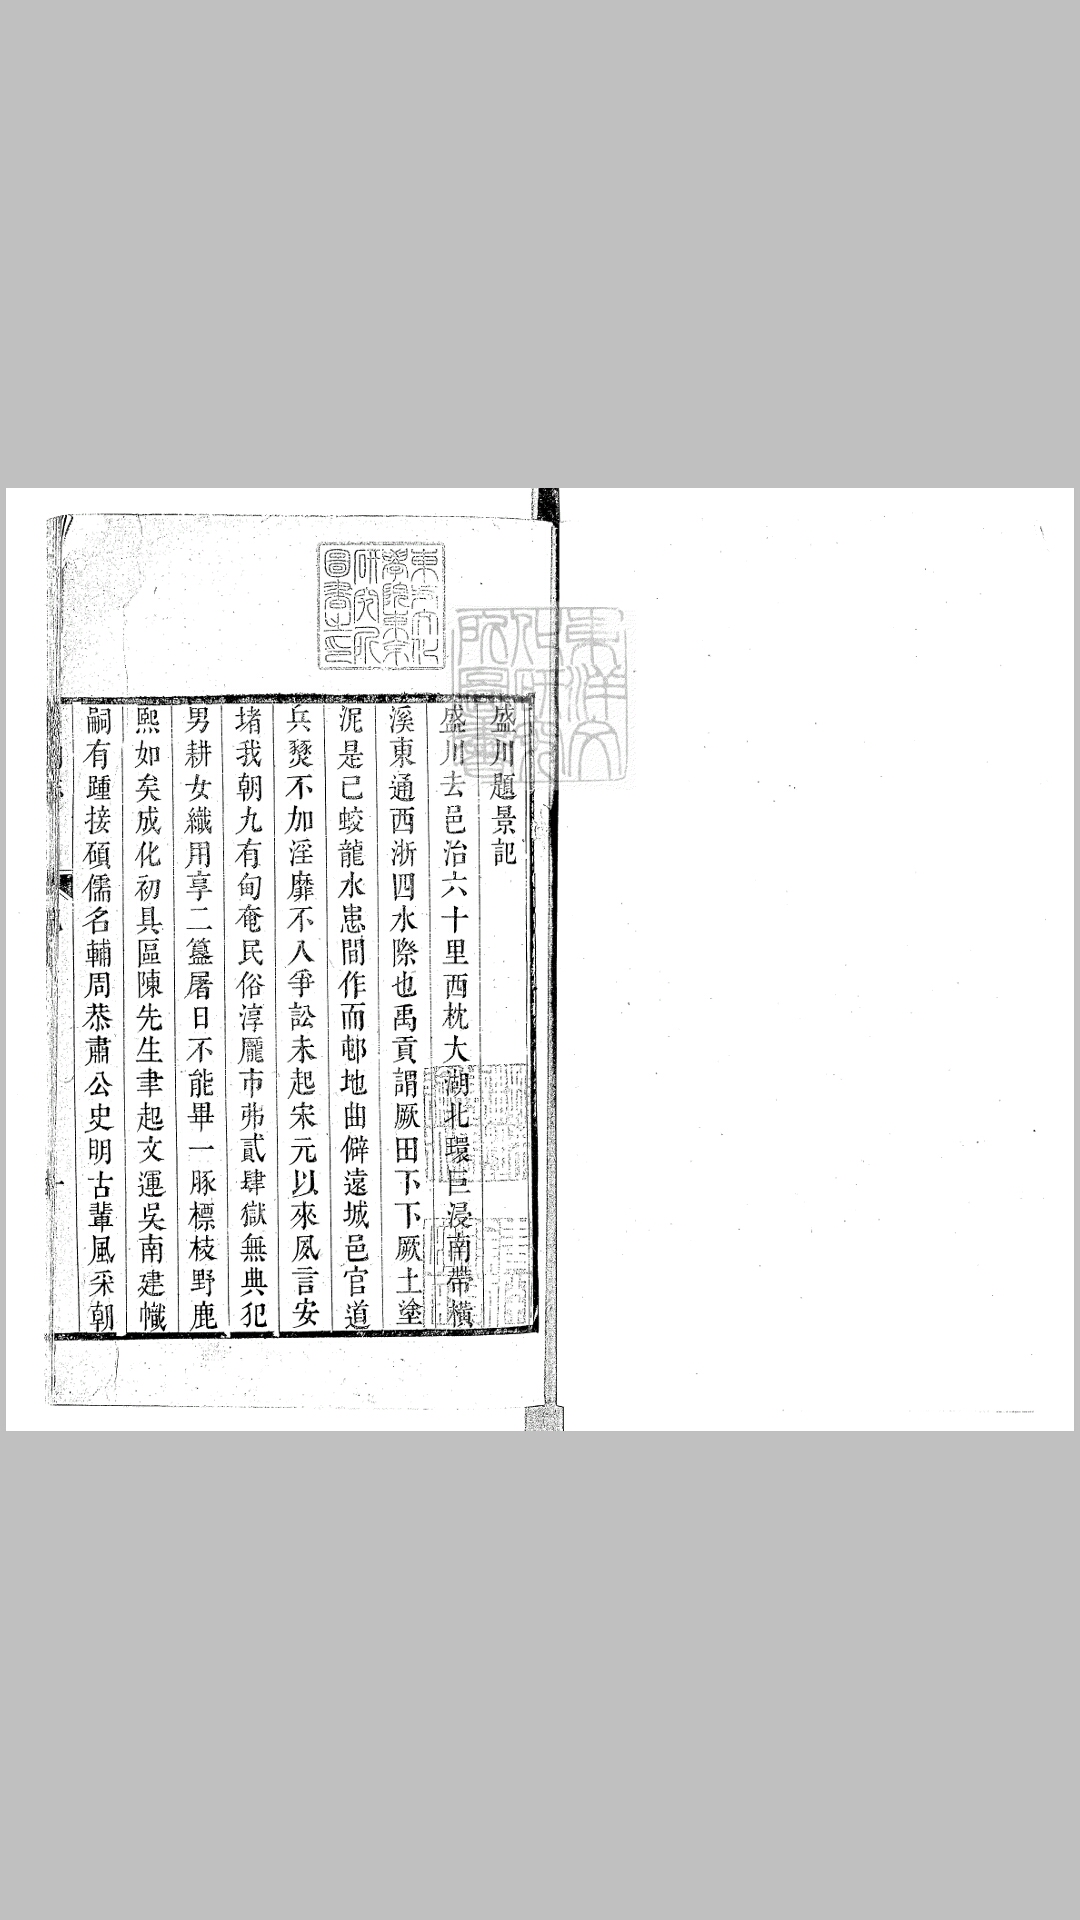 盛川題景記
盛川去邑治六十里西枕大湖北環巨浸南帶橫
溪東通西浙四水際也禹貢謂厥田下下厥土塗
泥是已蛟龍水患間作而邨地曲僻遠城邑官道
兵燹不加淫靡不入爭訟未起宋元以來夙言安
堵我朝九有甸奄民俗淳龐市弗貳肆獄無典犯
男耕女織用享二簋屠日不能畢一豚標枝野鹿
熙如矣成化初具區陳先生聿起文運吳南建幟
嗣有踵接碩儒名輔周恭肅公史明古輩風采朝
東方文化
學院東京
研究所
圖書之印
東洋文
化研究
所圖書